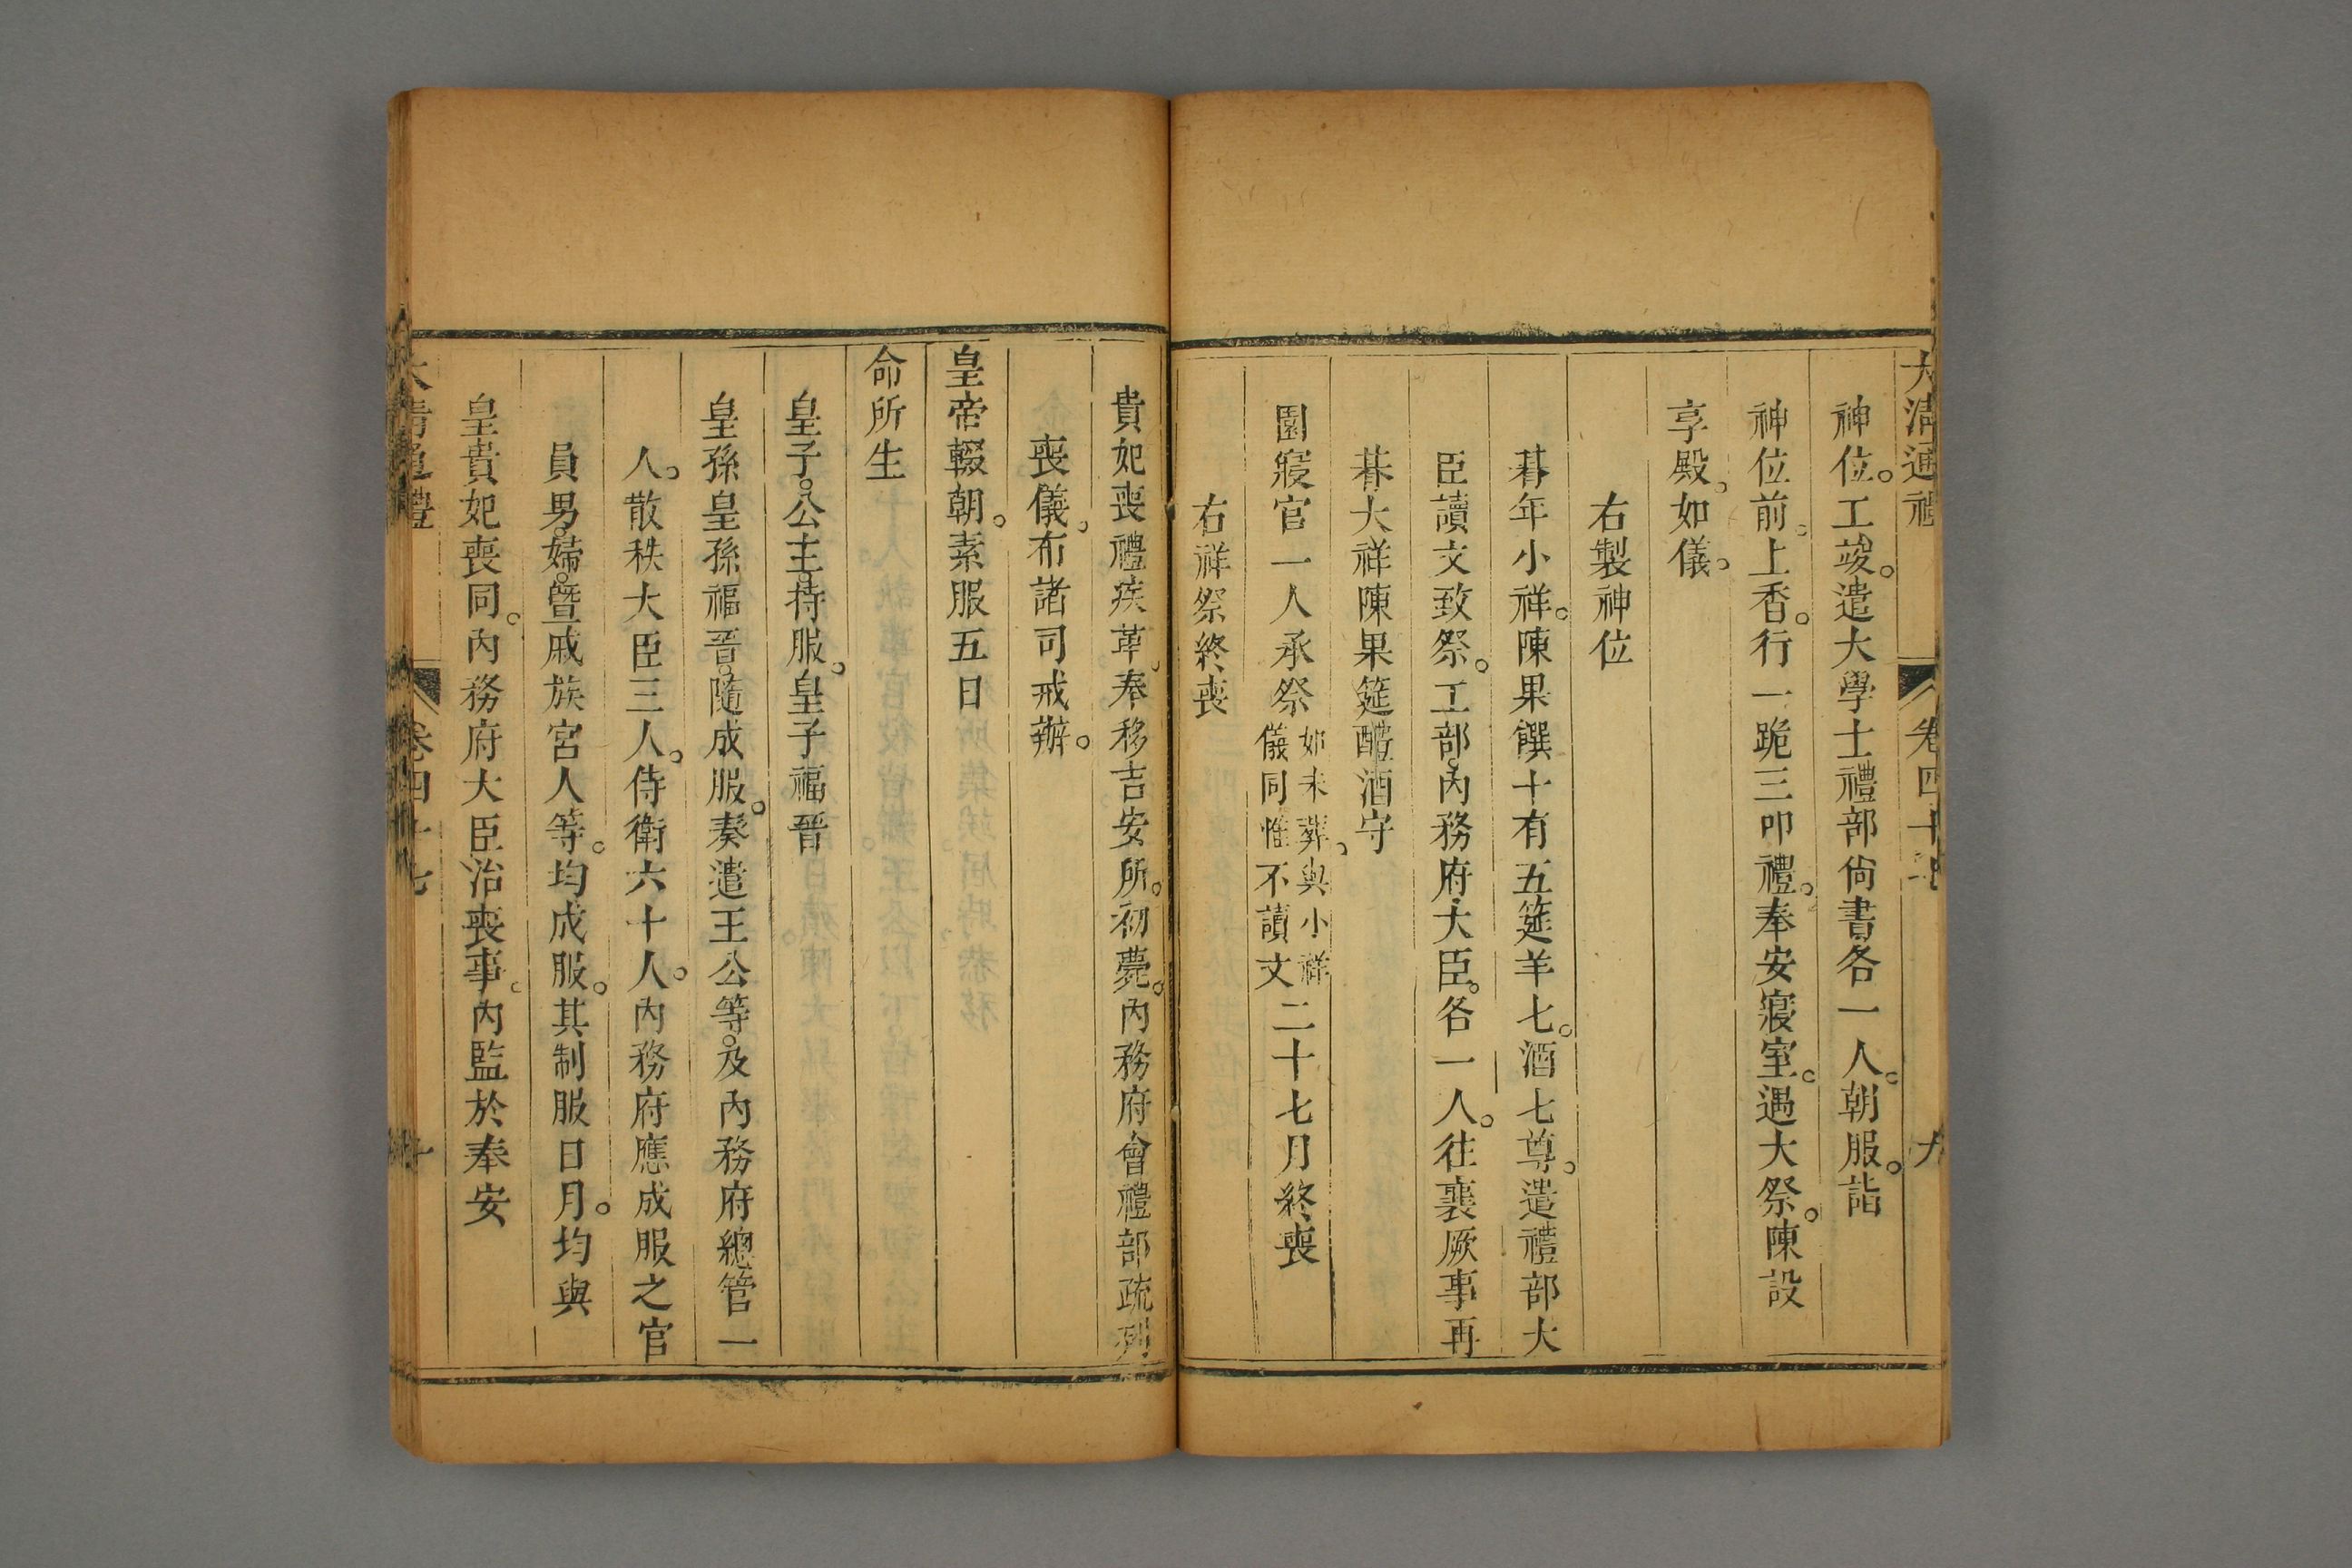 大清通禮 卷四十七 九
神位。工竣。遣大學士禮部尚書各一人。朝服。詣
神位前。上香。行一跪三叩禮。奉安寢室。遇大祭。陳設
享殿。如儀。
右製神位
朞年小祥。陳果饌十有五筵羊七。酒七尊。遣禮部大
臣讀文致祭。工部。內務府大臣。各一人。往襄厥事再
朞大祥陳果筵醴酒守
園寢官一人承祭如未葬。與小祥儀同惟不讀文二十七月終喪
右祥祭終喪
貴妃喪禮疾革。奉移吉安所。初薨。內務府會禮部疏列
喪儀。布諸司戒辦。
皇帝輟朝。素服五日
命所生
皇子。公主。持服。皇子福晉
皇孫皇孫福晉。隨成服。奏遣王公等。及內務府總管一
人。散秩大臣三人。侍衛六十人。內務府應成服之官
員男。婦。曁戚族宮人等。均成服。其制服日月。均與
皇貴妃喪同。內務府大臣治喪事。內監於奉安
大清通禮 卷四十七 十